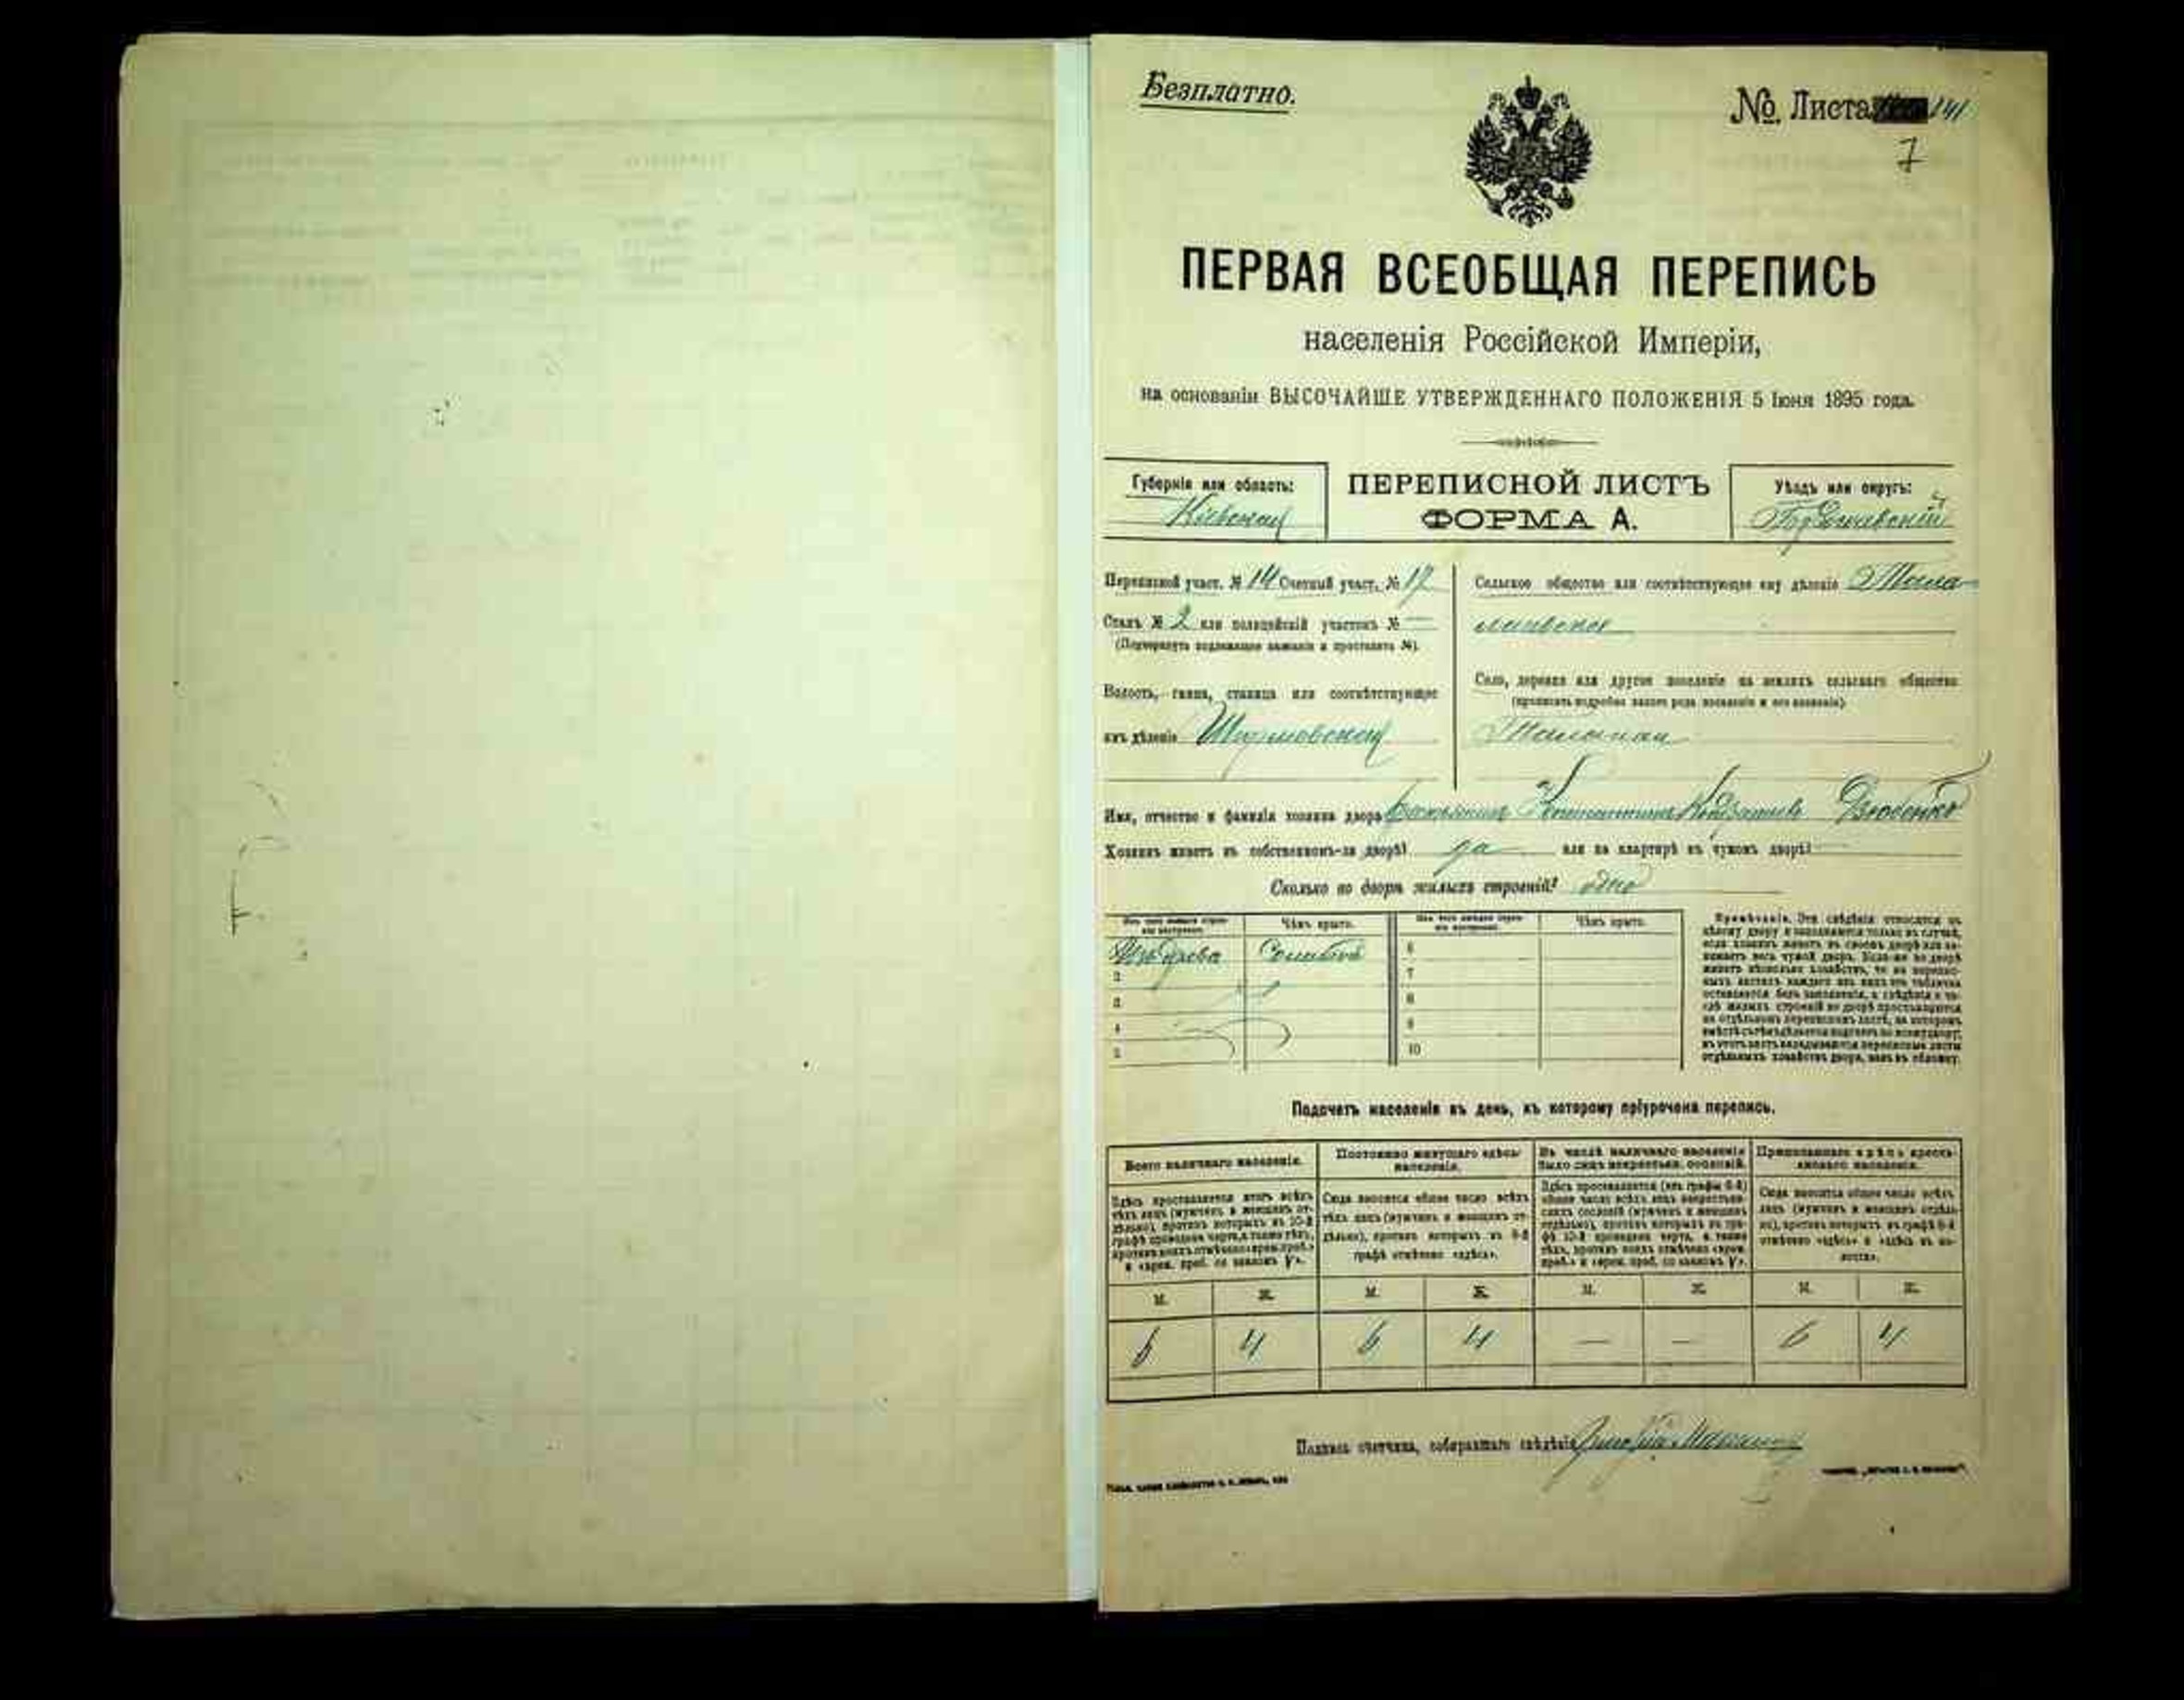 Безплатно.
№ Листа 141
7
ПЕРВАЯ ВСЕОБЩАЯ ПЕРЕПИСЬ
населенія Россійской Имперіи,
на основаніи ВЫСОЧАЙШЕ УТВЕРЖДЕННАГО ПОЛОЖЕНІЯ 5 Іюня 1895 года.
Губернія или область:
Кіевская
ПЕРЕПИСНОЙ ЛИСТЪ
ФОРМА А.
Уѣздъ или округъ:
Переписной участ. № 14 Счетный участ. № 17
Станъ № 2 или полицейскій участокъ № —
(Подчеркнуть подлежащее названіе и проставить №).
Волость, гмина, станица или соотвѣтствующее
имъ дѣленіе
Сельское общество или соотвѣтствующее ему дѣленіе
Село, деревня или другое поселеніе на земляхъ сельскаго общества
(прописать подробно какого рода поселеніе и его названіе).
Имя, отчество и фамилія хозяина двора Дзюбенко
Хозяинъ живетъ въ собственномъ-ли дворѣ? да или на квартирѣ въ чужомъ дворѣ?
Сколько во дворѣ жилыхъ строеній? одно
Чѣмъ крыто.
Чѣмъ крыто.
Изъ древа Соломой
2
3
4
5
6
7
8
9
10
Примѣчаніе. Эти свѣдѣнія относятся къ
цѣлому двору и заполняются только въ случаѣ,
если хозяинъ живетъ въ своемъ дворѣ или за-
нимаетъ весь чужой дворъ. Если-же во дворѣ
живетъ нѣсколько хозяйствъ, то на перепис-
ныхъ листахъ каждаго изъ нихъ эта табличка
оставляется безъ заполненія, а свѣдѣнія о чи-
слѣ жилыхъ строеній во дворѣ проставляются
на отдѣльномъ переписномъ листѣ, на которомъ
отдѣльныхъ хозяйствъ двора, какъ въ обложку.
Подсчетъ населенія въ день, къ которому пріурочена перепись.
Всего наличнаго населенія.
Постоянно живущаго здѣсь
населенія.
Въ числѣ наличнаго населенія
было лицъ некрестьян. сословій.
Приписаннаго здѣсь кресть-
янскаго населенія.
Здѣсь проставляется итогъ всѣхъ
тѣхъ лицъ (мужчин. и женщинъ от-
дѣльно), противъ которыхъ въ 10-й
графѣ проведена черта, а также тѣхъ,
противъ коихъ отмѣчено «врем. преб.»
и «врем. преб. со знакомъ V».
Сюда вносится общее число всѣхъ
тѣхъ лицъ (мужчин. и женщинъ от-
дѣльно), противъ которыхъ въ 8-й
графѣ отмѣчено «здѣсь».
Здѣсь проставляется (изъ графы 6-й)
общее число всѣхъ лицъ некрестьян-
скихъ сословій (мужчин. и женщинъ
отдѣльно), противъ которыхъ въ гра-
фѣ 10-й проведена черта, а также
тѣхъ, противъ коихъ отмѣчено «врем.
преб.» и «врем. преб. со знакомъ V».
Сюда вносится общее число всѣхъ
лицъ (мужчин. и женщинъ отдѣль-
но), противъ которыхъ въ графѣ 8-й
отмѣчено «здѣсь» и «здѣсь въ во-
лости».
М. Ж. М. Ж. М. Ж. М. Ж.
6 4 6 4 — — 6 4
Подпись счетчика, собиравшаго свѣдѣнія